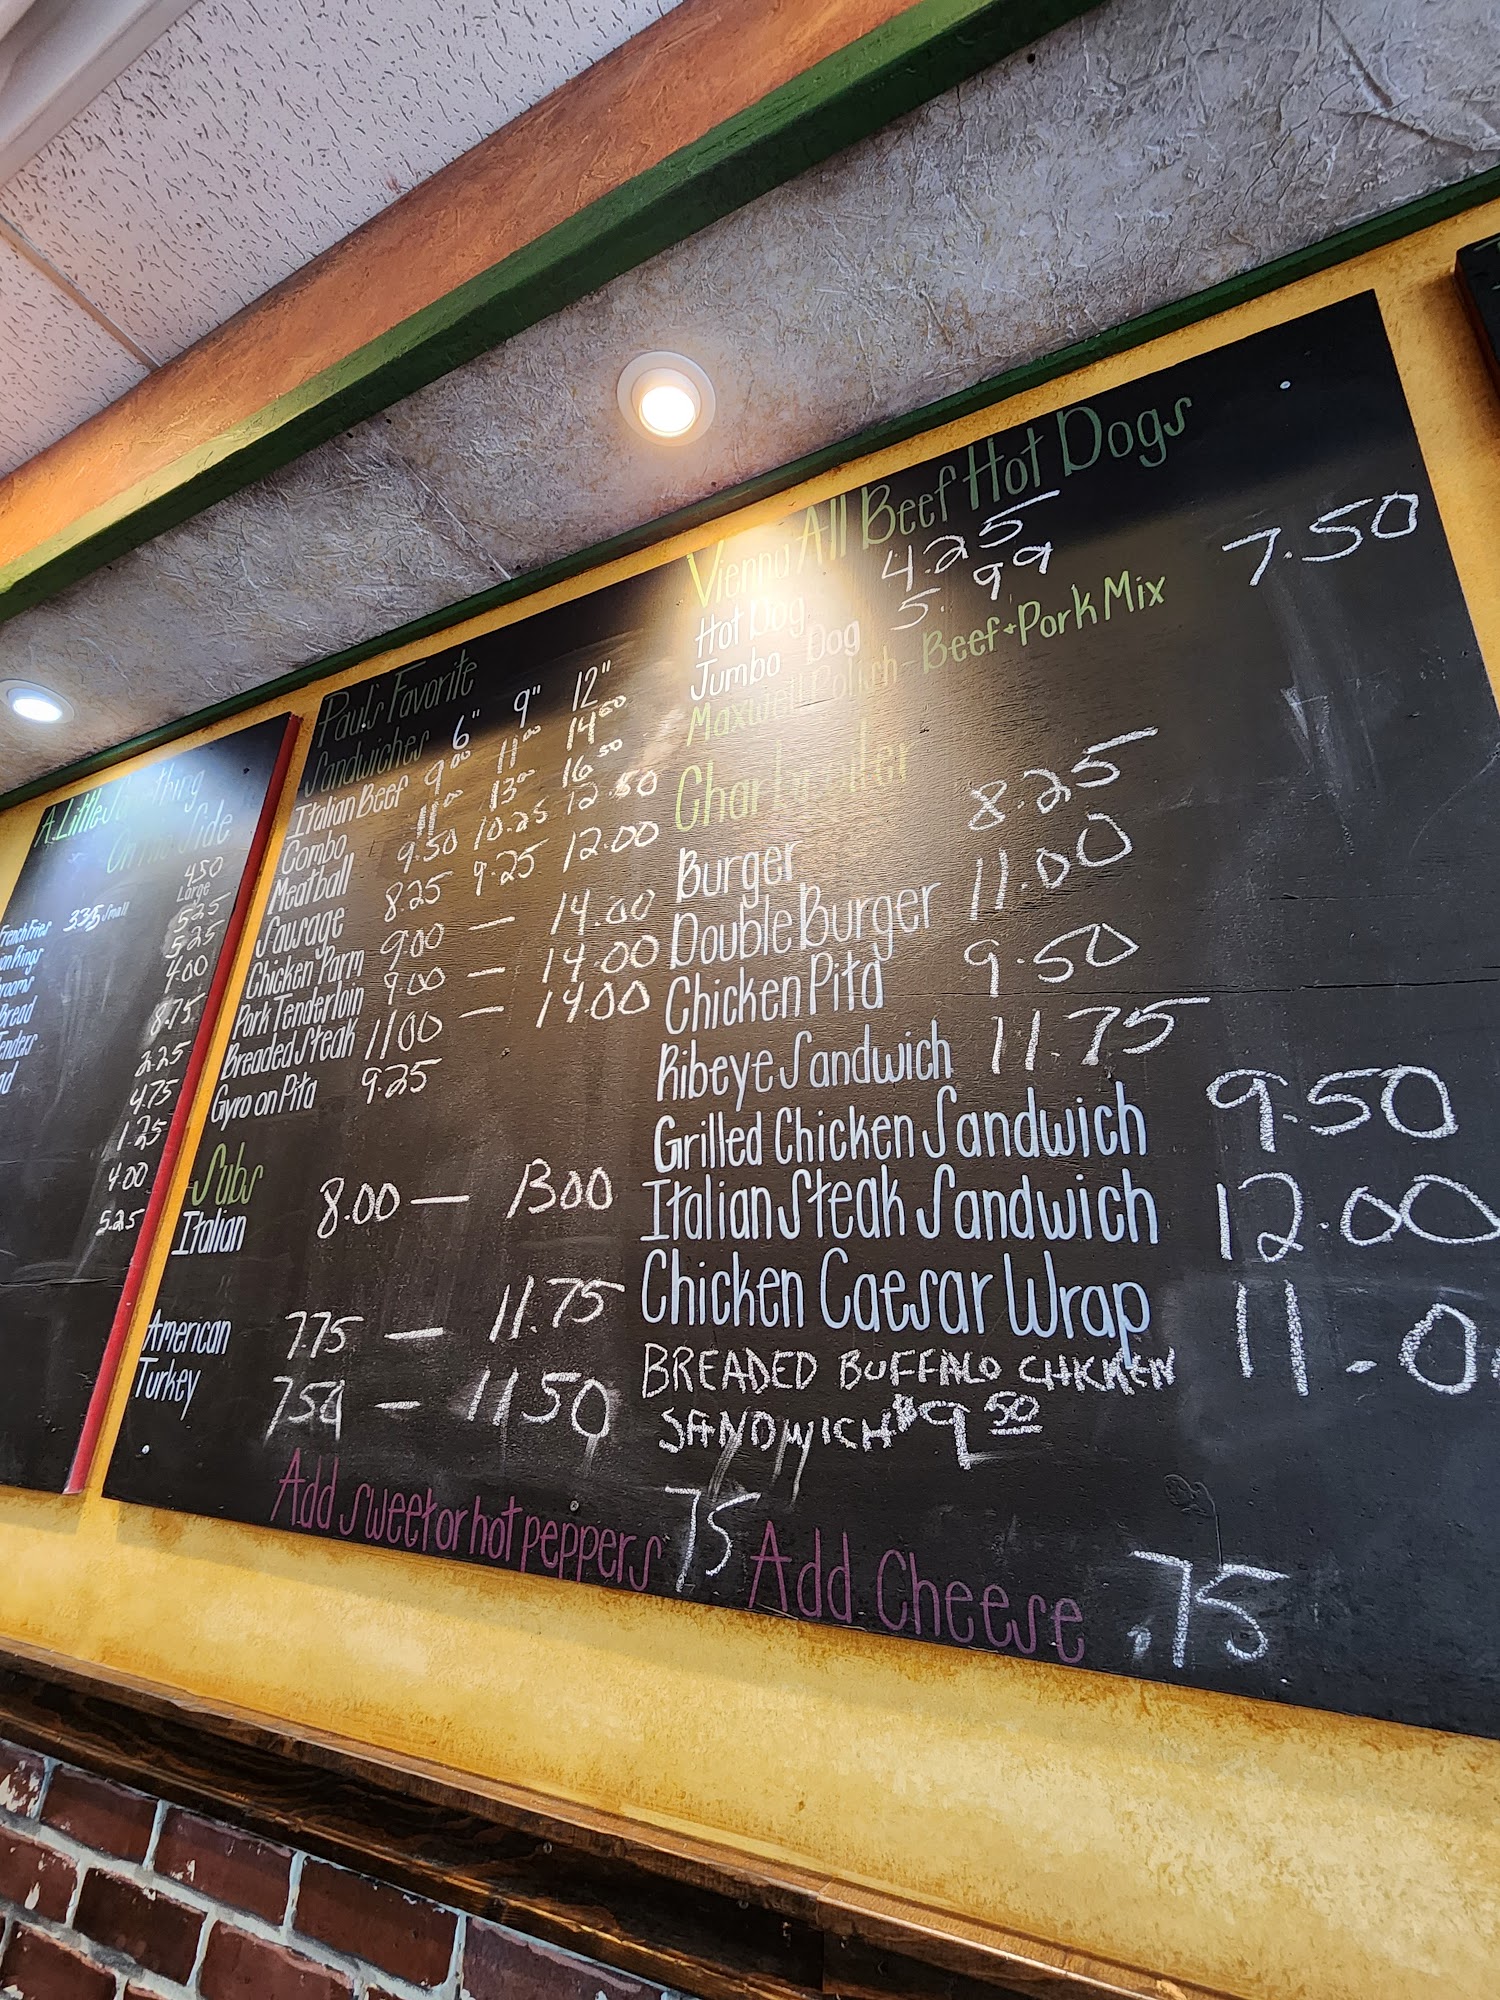 A Little Something
On The Side
4.50
Large
French Fries 3.35 Small 5.25
5.25
4.00
Bread 8.75
2.25
4.75
1.25
4.00
5.25
Paul's Favorite
Sandwiches 6" 9" 12"
Italian Beef 9.00 11.00 14.50
Combo 11.00 13.00 16.50
Meatball 9.50 10.25 12.50
Sausage 8.25 9.25 12.00
Chicken Parm 9.00 — 14.00
Pork Tenderloin 9.00 — 14.00
Breaded Steak 11.00 — 14.00
Gyro on Pita 9.25
Subs
Italian 8.00 — 13.00
American 7.75 — 11.75
Turkey 7.50 — 11.50
Vienna All Beef Hot Dogs
Hot Dog 4.25
Jumbo Dog 5.99
Maxwell Polish - Beef + Pork Mix 7.50
Charbroiler
Burger 8.25
Double Burger 11.00
Chicken Pita 9.50
Ribeye Sandwich 11.75
Grilled Chicken Sandwich 9.50
Italian Steak Sandwich 12.00
Chicken Caesar Wrap 11.0
BREADED BUFFALO CHICKEN
SANDWICH $9.50
Add sweet or hot peppers 75 Add Cheese .75